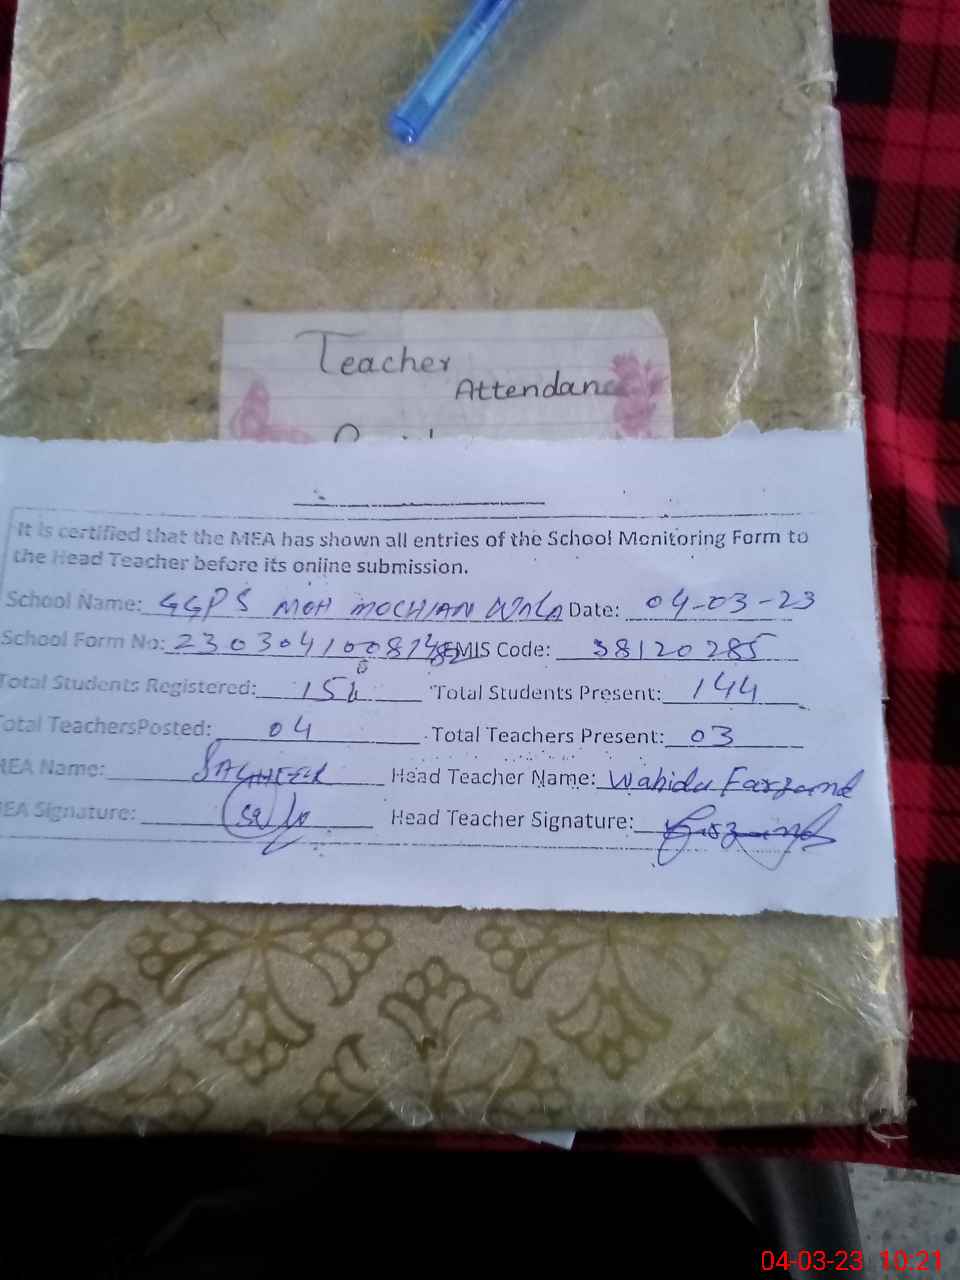 Teacher
Attendanc
It is certified that the MEA has shown all entries of the School Monitoring Form to
the Head Teacher before its online submission.
School Name: GGPS MOH MOCHIAN WALA Date: 04-03-23
School Form No: EMIS Code: 38120285
Total Students Registered: Total Students Present: 144
Total TeachersPosted: 04 Total Teachers Present: 03
MEA Name: SAGHEER Head Teacher Name: Wahida Farzand
MEA Signature: Head Teacher Signature:
04-03-23 10:21